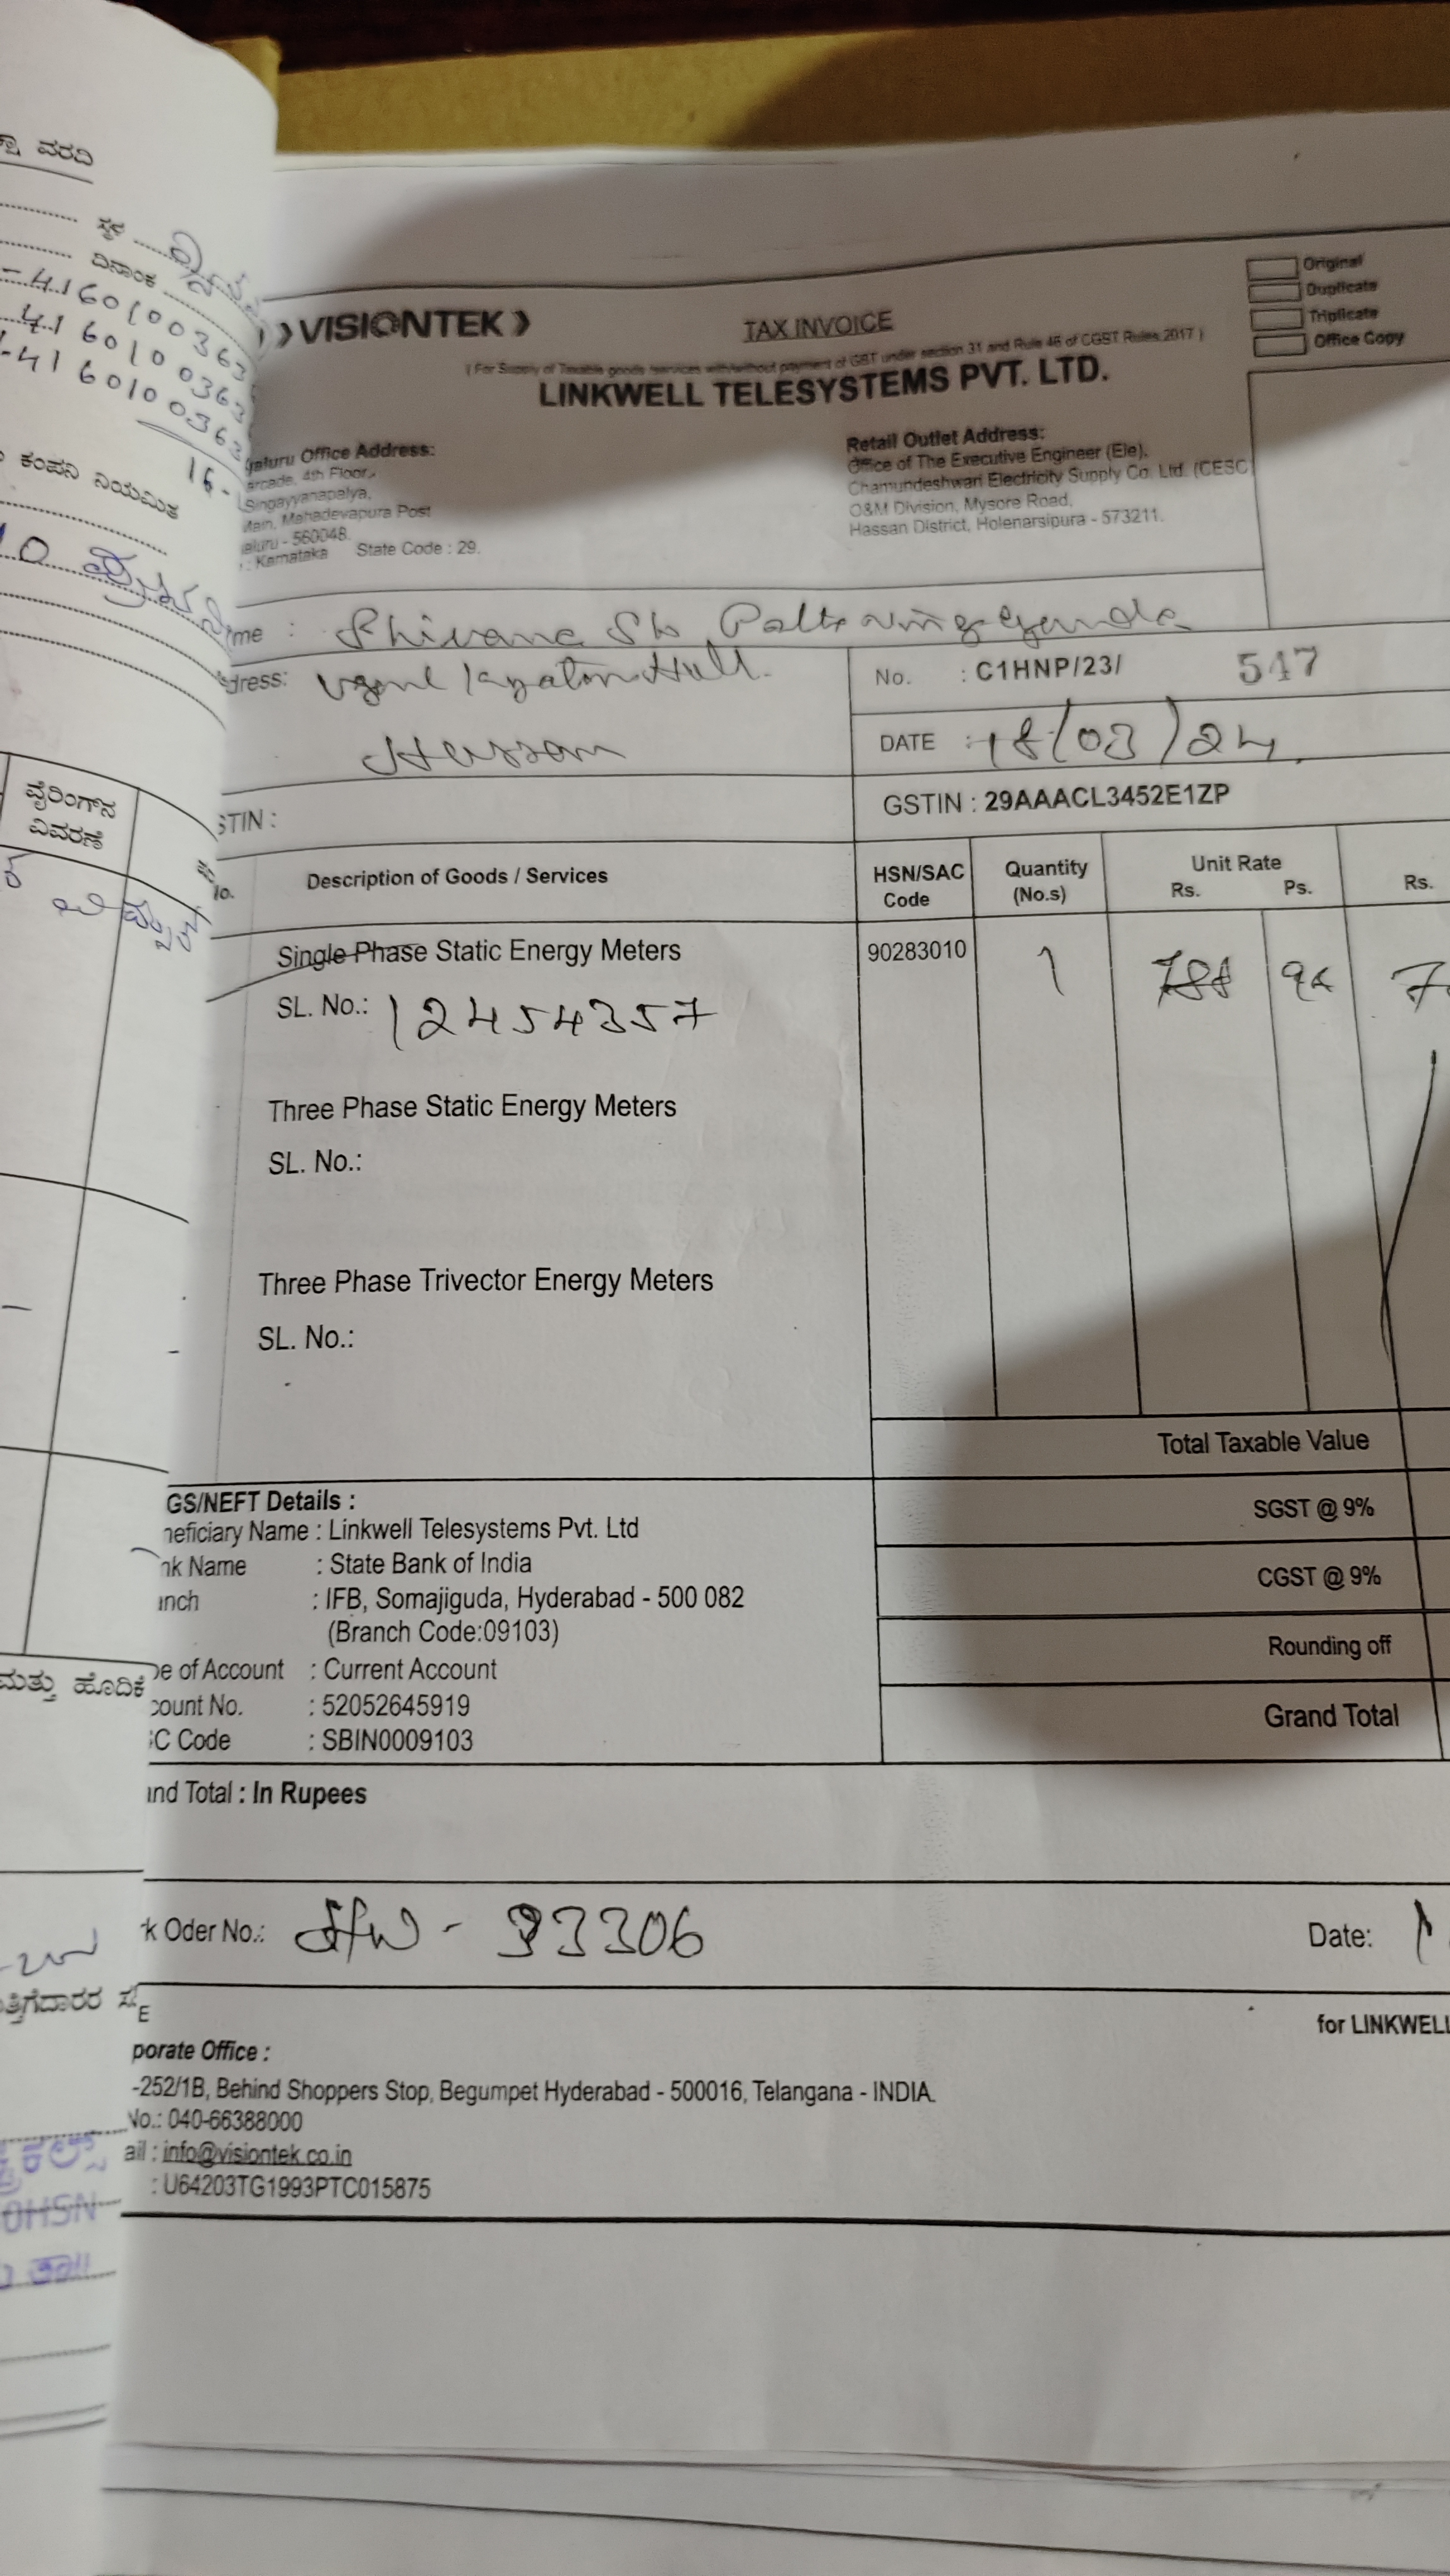 ವರದಿ
ಸ್ಥಳ
ದಿನಾಂಕ
-4160100363
4160100363
-4160100363
16-
ಕಂಪನಿ ನಿಯಮಿತ
ವೈರಿಂಗ್‌ನ
ವಿವರಣೆ
ಮತ್ತು ಹೊದಿಕೆ
VISIONTEK
TAX INVOICE
Original
Duplicate
Triplicate
Office Copy
( For Supply of Taxable goods /services with/without payment of GST under section 31 and Rule 46 of CGST Rules 2017 )
LINKWELL TELESYSTEMS PVT. LTD.
Office Address:
4th Floor,
Singayyanapalya,
Main, Mahadevapura Post
- 560048.
: Karnataka State Code : 29.
Retail Outlet Address:
Office of The Executive Engineer (Ele),
Chamundeshwari Electricity Supply Co. Ltd. (CESC
O&M Division, Mysore Road,
Hassan District, Holenarsipura - 573211.
:
No. : C1HNP/23/ 547
Hassan
DATE : 18/03/24
STIN :
GSTIN : 29AAACL3452E1ZP
Description of Goods / Services
HSN/SAC
Code
Quantity
(No.s)
Unit Rate
Rs. Ps.
Rs.
Single Phase Static Energy Meters 90283010 1
SL. No.: 12454357
Three Phase Static Energy Meters
SL. No.:
Three Phase Trivector Energy Meters
SL. No.:
Total Taxable Value
SGST @ 9%
CGST @ 9%
Rounding off
Grand Total
GS/NEFT Details :
neficiary Name : Linkwell Telesystems Pvt. Ltd
nk Name : State Bank of India
anch : IFB, Somajiguda, Hyderabad - 500 082
(Branch Code:09103)
pe of Account : Current Account
count No. : 52052645919
C Code : SBIN0009103
and Total : In Rupees
k Oder No.: 93306
Date:
for LINKWELL
porate Office :
-252/1B, Behind Shoppers Stop, Begumpet Hyderabad - 500016, Telangana - INDIA.
No.: 040-66388000
ail : info@visiontek.co.in
: U64203TG1993PTC015875